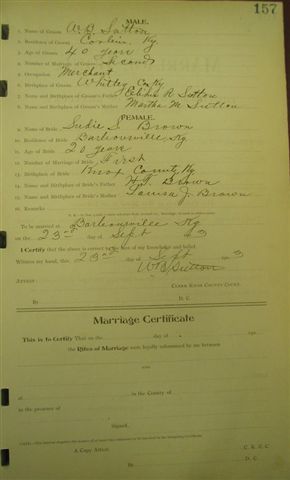 157
MALE.
1. Name of Groom W. B. Sutton
2. Residence of Groom Corbin, Ky.
3. Age of Groom 40 years
4. Number of Marriage of Groom Second
5. Occupation Merchant
6. Birthplace of Groom Whitley Co Ky
7. Name and Birthplace of Groom's Father R Sutton
8. Name and Birthplace of Groom's Mother Martha M Sutton
FEMALE.
9. Name of Bride Sudie S Brown
10. Residence of Bride Barbourville Ky
11. Age of Bride 20 years
12. Number of Marriage of Bride First
13. Birthplace of Bride Knox County Ky
14. Name and Birthplace of Bride's Father Brown
15. Name and Birthplace of Bride's Mother Louisa J. Brown
16. Remarks
To be married at Barbourville Ky
on the 23rd day of Sept 3
I Certify that the above is correct to the best of my knowledge and belief.
Witness my hand, this 23rd day of Sept 3
W B Sutton
Attest:
Clerk Knox County Court.
By D. C.
Marriage Certificate
This is to Certify That on the day of
the Rites of Marriage were legally solemnized by me between
and
at in the County of
in the presence of
Signed,
A Copy Attest: C. K. C. C.
By D. C.